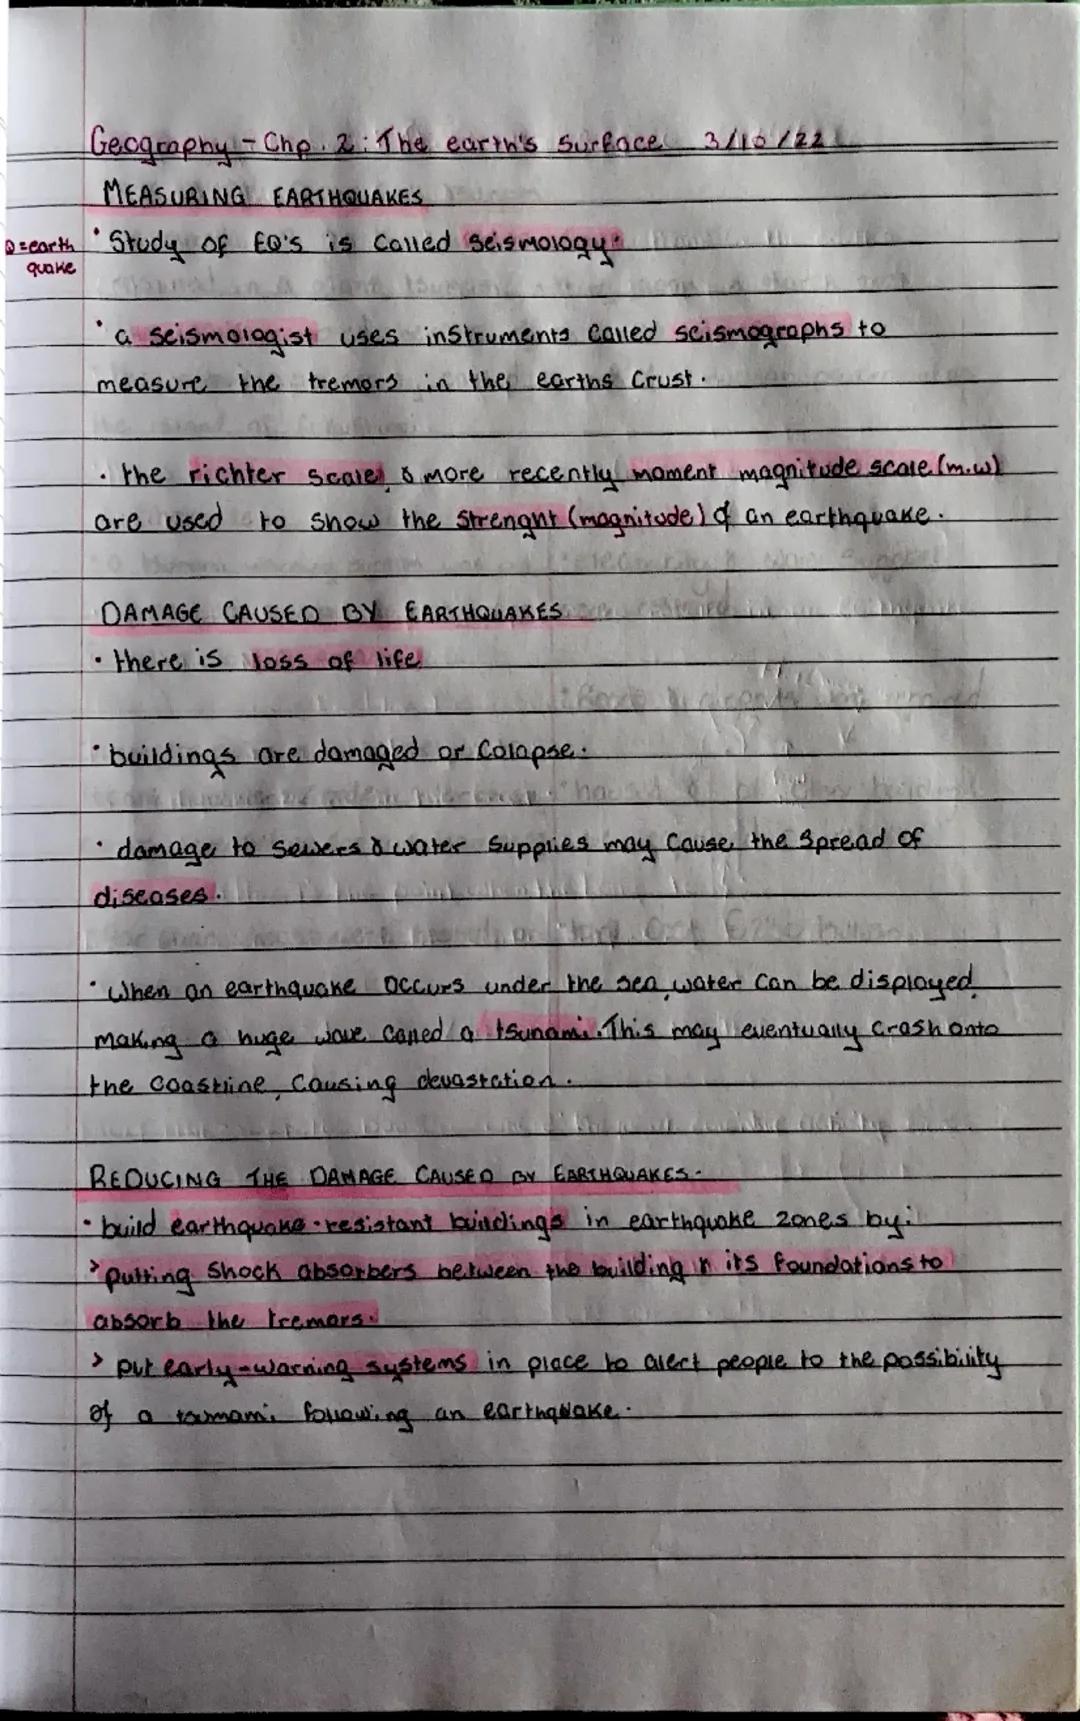 Geography - Chp. 2: The earth's Surface 3/10/22
MEASURING EARTHQUAKES
Q = earth
quake
• Study of EQ's is called seismology.
• a seismologist uses instruments called seismographs to
measure the tremors in the earths crust.
• the richter scale, & more recently moment magnitude scale (m.w)
are used to show the strenght (magnitude) of an earthquake.
DAMAGE CAUSED BY EARTHQUAKES
• there is loss of life
• buildings are damaged or colapse.
• damage to sewers & water supplies may cause the spread of
diseases.
• when an earthquake occurs under the sea, water can be displayed,
making a huge wave called a tsunami. This may eventually crash onto
the coastline, causing devastation.
REDUCING THE DAMAGE CAUSED BY EARTHQUAKES.
• build earthquake-resistant buildings in earthquake zones by:
> putting shock absorbers between the building n its foundations to
absorb the tremors.
> put early-warning systems in place to alert people to the possibility
of a following an earthquake.